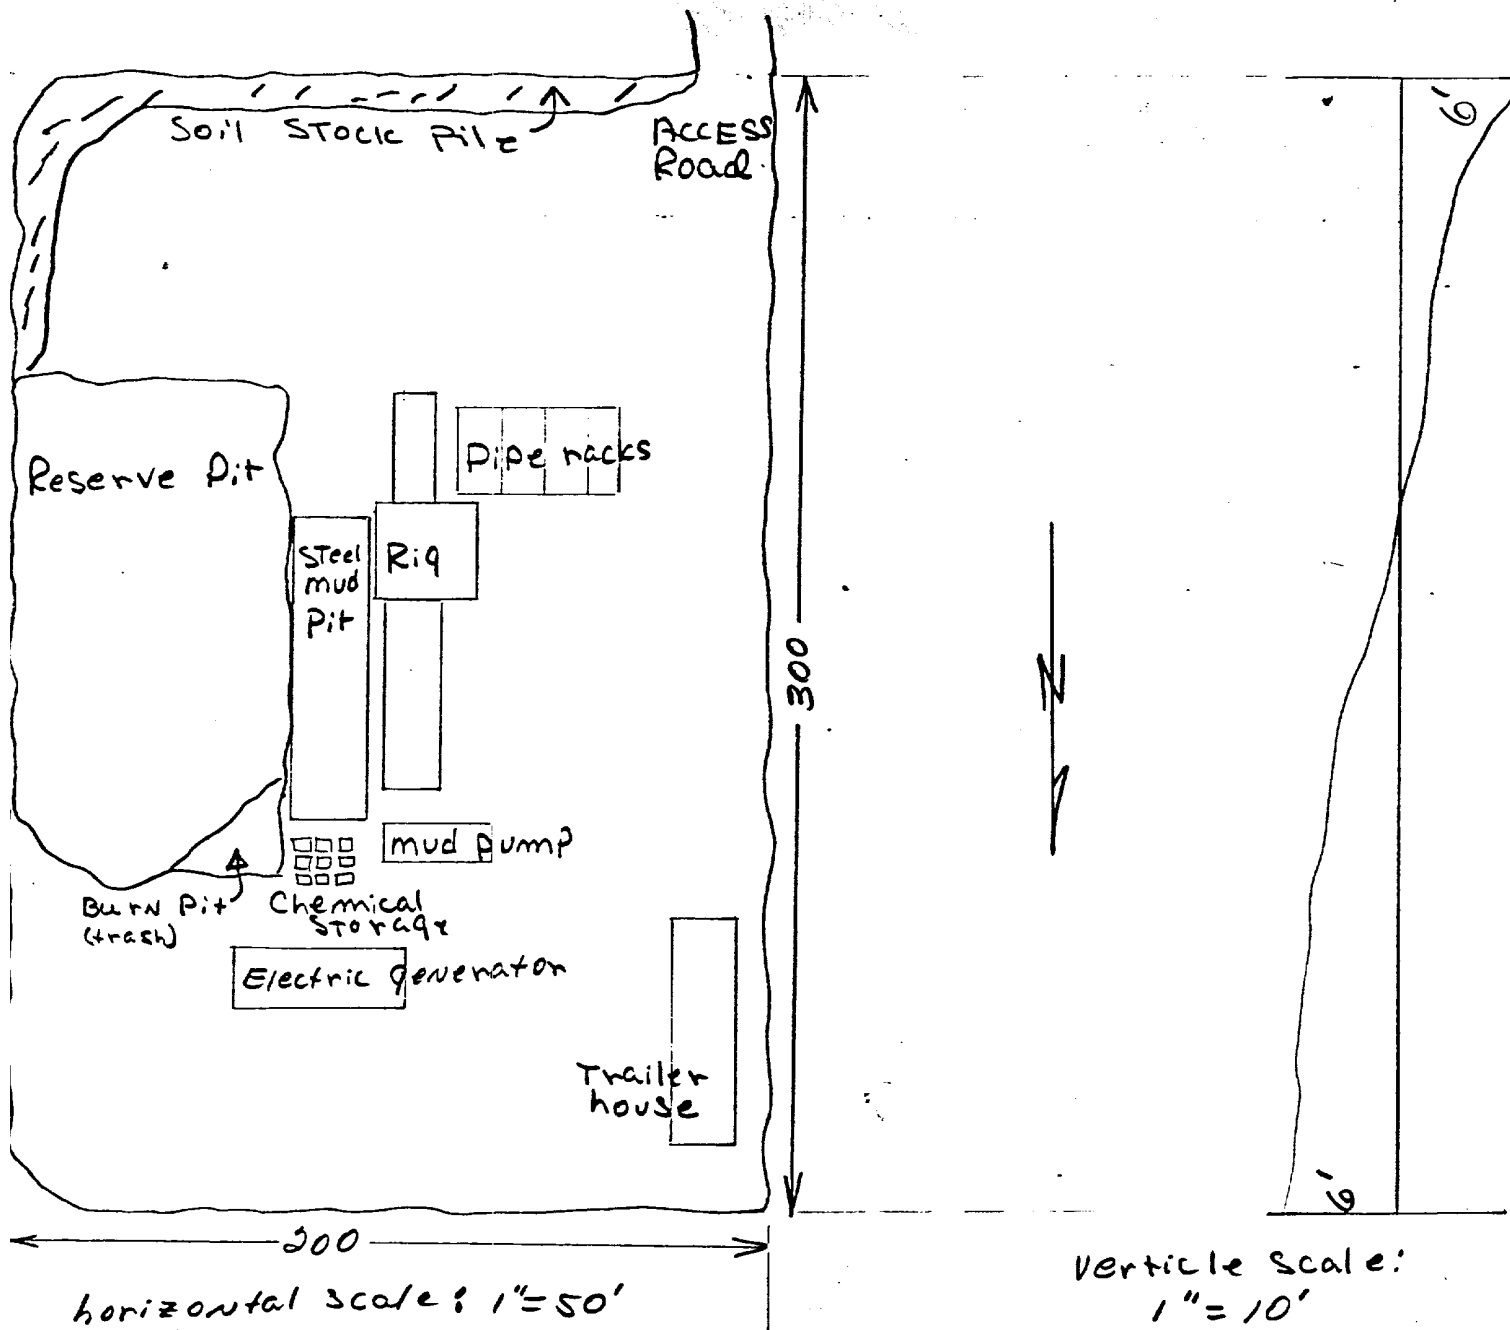 Soil Stock Pile
ACCESS
Road
6'
Reserve Pit
Pipe racks
Steel
mud
Pit
Rig
300
N
mud pump
Burn Pit
(trash)
Chemical
Storage
Electric generator
Trailer
house
6'
200
horizontal scale: 1"=50'
verticle scale:
1"=10'